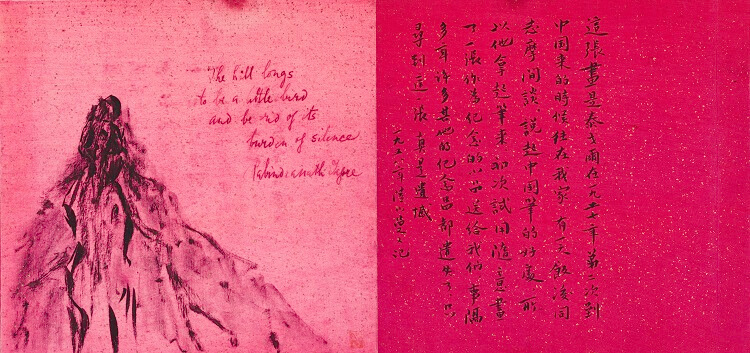 The hill longs
to be a little bird
and be rid of its
burden of silence
Rabindranath Tagore
這張畫是泰戈爾在一九二七年第二次到
中国来的時候住在我家有一天飯後同
志摩閒談說起中国筆的好處所
以他拿起筆来初次試用隨意畫
了一張作為纪念的小品送给我們事隔
多年許多其他的纪念品都遺失了只
尋到這一張真是遺憾
年陸小曼記